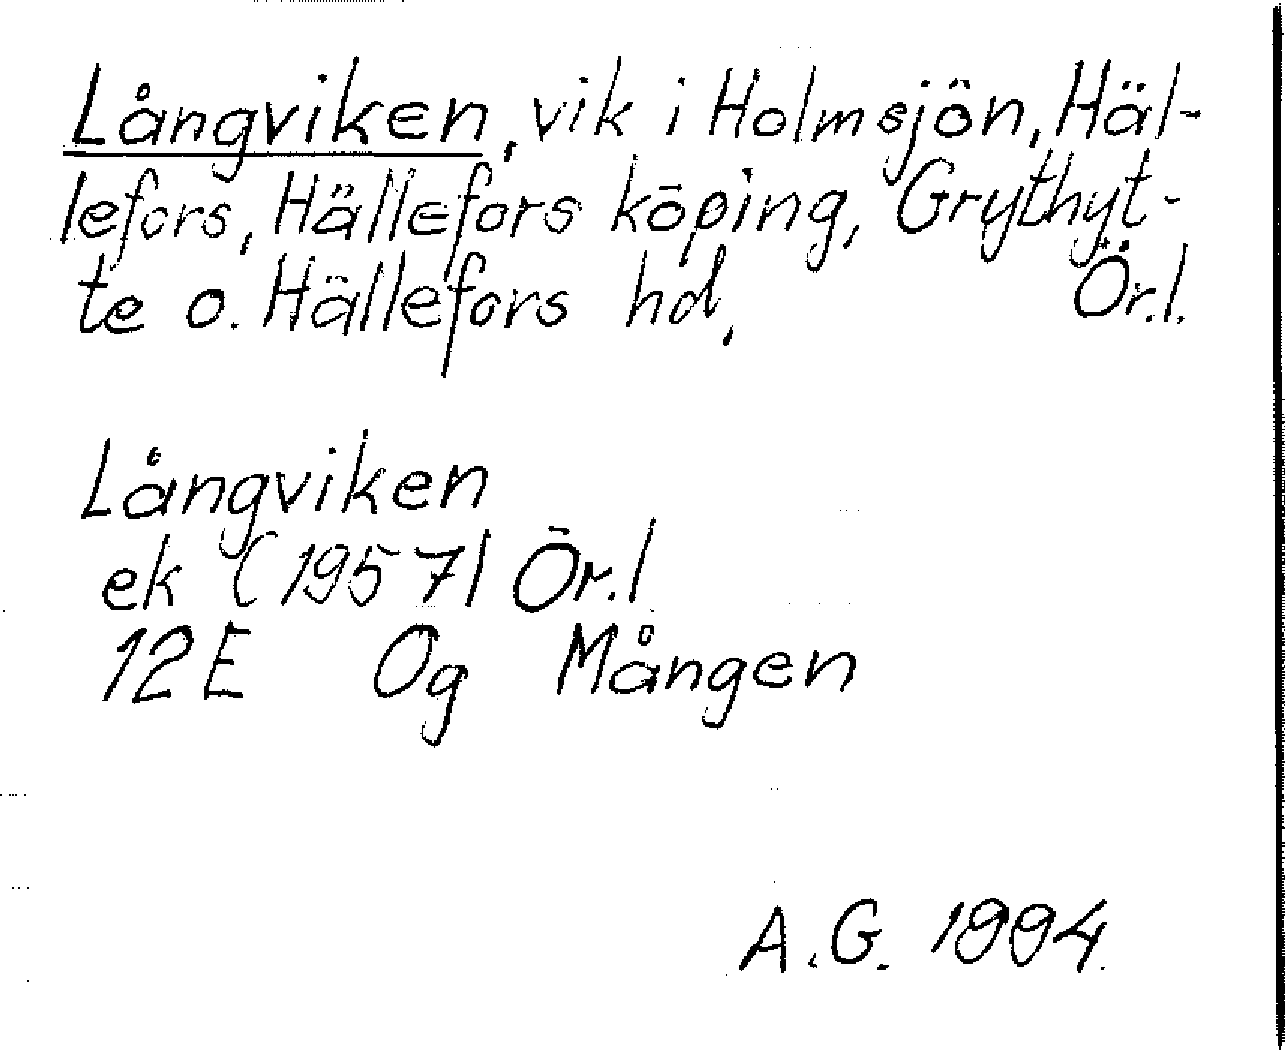 Långviken, vik i Holmsjön, Häl-
lefors, Hällefors köping, Grythyt-
te o. Hällefors hd, Ör.l.
Långviken
ek (1957) Ör.l
12E Og Mången
A.G. 1994.